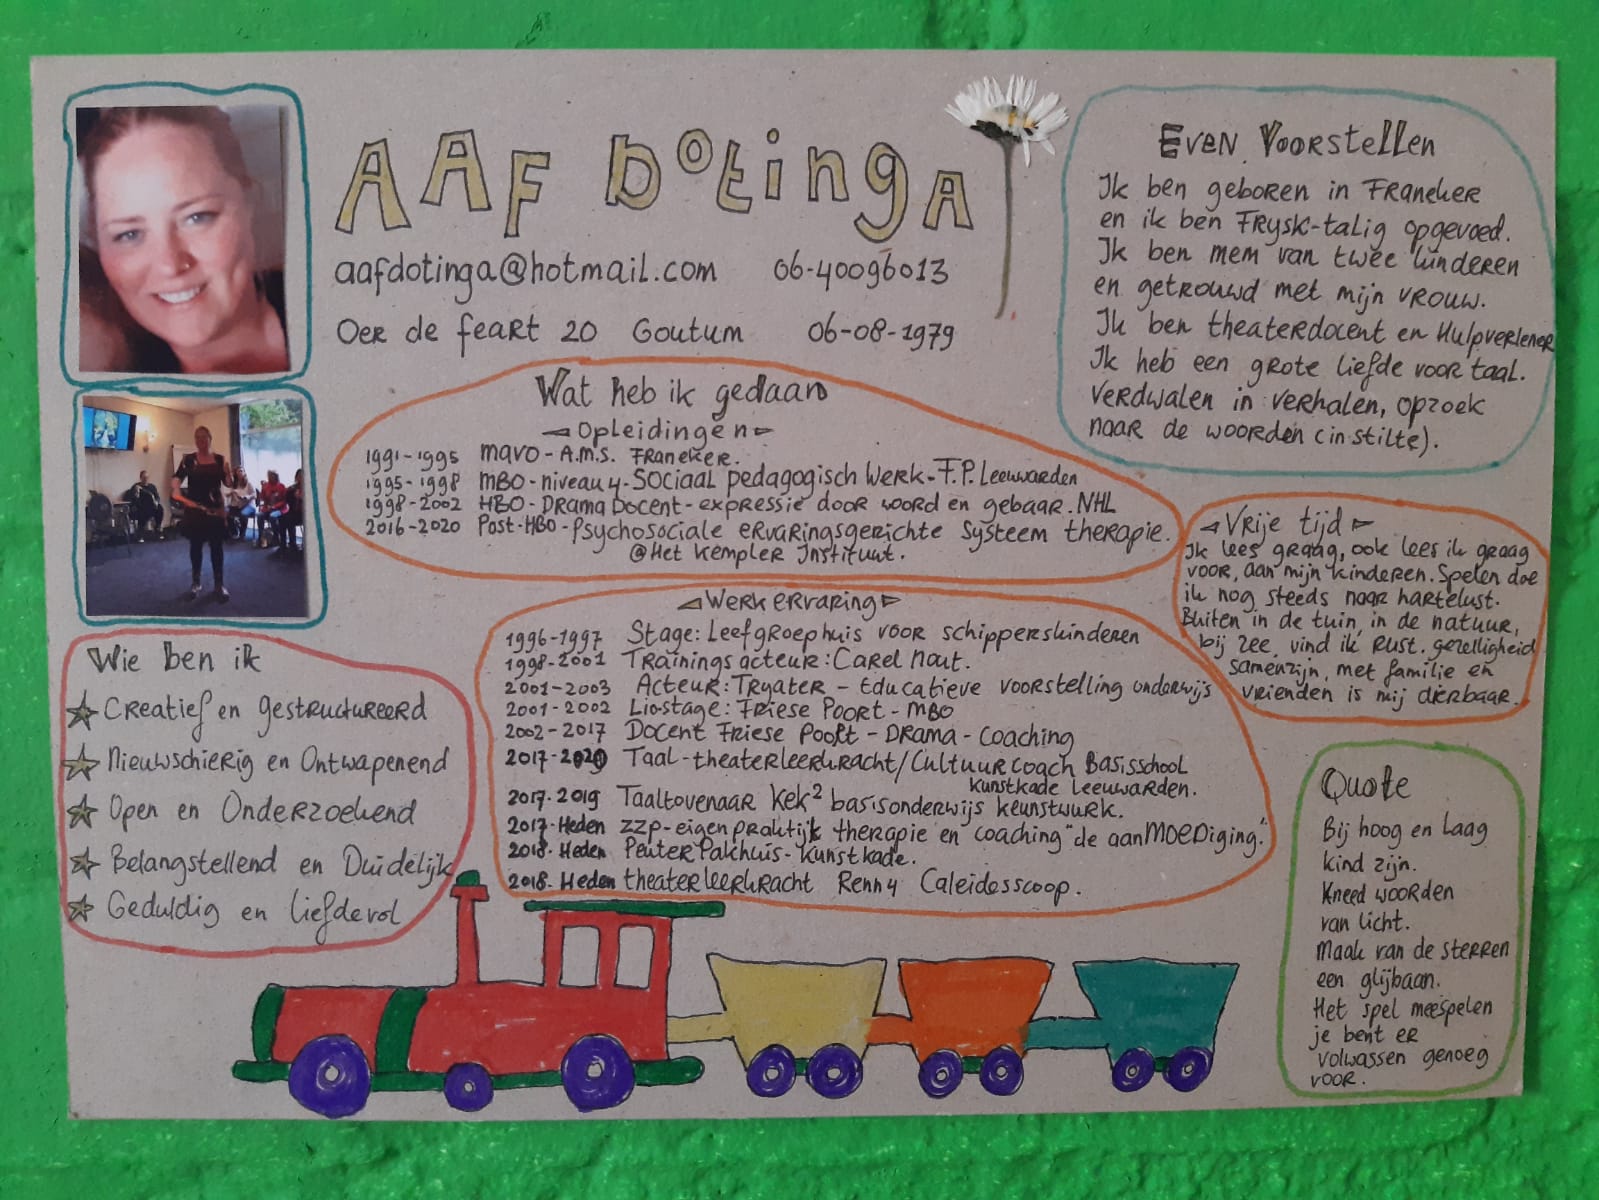 AAF Dotinga
aafdotinga@hotmail.com 06-40096013
Oer de feart 20 Goutum 06-08-1979
Even Voorstellen
Ik ben geboren in Franeker
en ik ben Frysk-talig opgevoed.
Ik ben mem van twee kinderen
en getrouwd met mijn vrouw.
Ik ben theaterdocent en Hulpverlener
Ik heb een grote liefde voor taal.
Verdwalen in verhalen, opzoek
naar de woorden (in stilte).
Wat heb ik gedaan
Opleidingen
1991-1995 MAVO - A.M.S. Franeker.
1995-1998 MBO-niveau 4-Sociaal pedagogisch Werk-F.P. Leeuwarden
1998-2002 HBO-Drama Docent-expressie door woord en gebaar. NHL
2016-2020 Post-HBO-Psychosociale ervaringsgerichte systeem therapie.
@Het Kempler Instituut.
Vrije tijd
Ik lees graag, ook lees ik graag
voor, aan mijn kinderen. Spelen doe
ik nog steeds naar hartelust.
Buiten in de tuin, in de natuur,
bij zee, vind ik rust. gezelligheid
samenzijn, met familie en
vrienden is mij dierbaar.
Werkervaring
1996-1997 Stage: Leefgroephuis voor schipperskinderen
1998-2001 Trainingsacteur: Carel Nout.
2001-2003 Acteur: Tryater - Educatieve voorstelling onderwijs
2001-2002 Lio-stage: Friese Poort - MBO
2002-2017 Docent Friese Poort - Drama - Coaching
2017-2020 Taal-theaterleerkracht/Cultuurcoach Basisschool
Kunstkade Leeuwarden.
2017-2019 Taaltovenaar Kek² basisonderwijs keunstwurk.
2017-Heden ZZP-eigen praktijk therapie en coaching "de aanMOEDiging."
2018-Heden PeuterPakhuis-Kunstkade.
2018-Heden theaterleerkracht Renn4 Caleidesscoop.
Wie ben ik
Creatief en gestructureerd
Nieuwschierig en Ontwapenend
Open en Onderzoekend
Belangstellend en Duidelijk
Geduldig en liefdevol
Quote
Bij hoog en laag
kind zijn.
Kneed woorden
van licht.
Maak van de sterren
een glijbaan.
Het spel meespelen
je bent er
volwassen genoeg
voor.